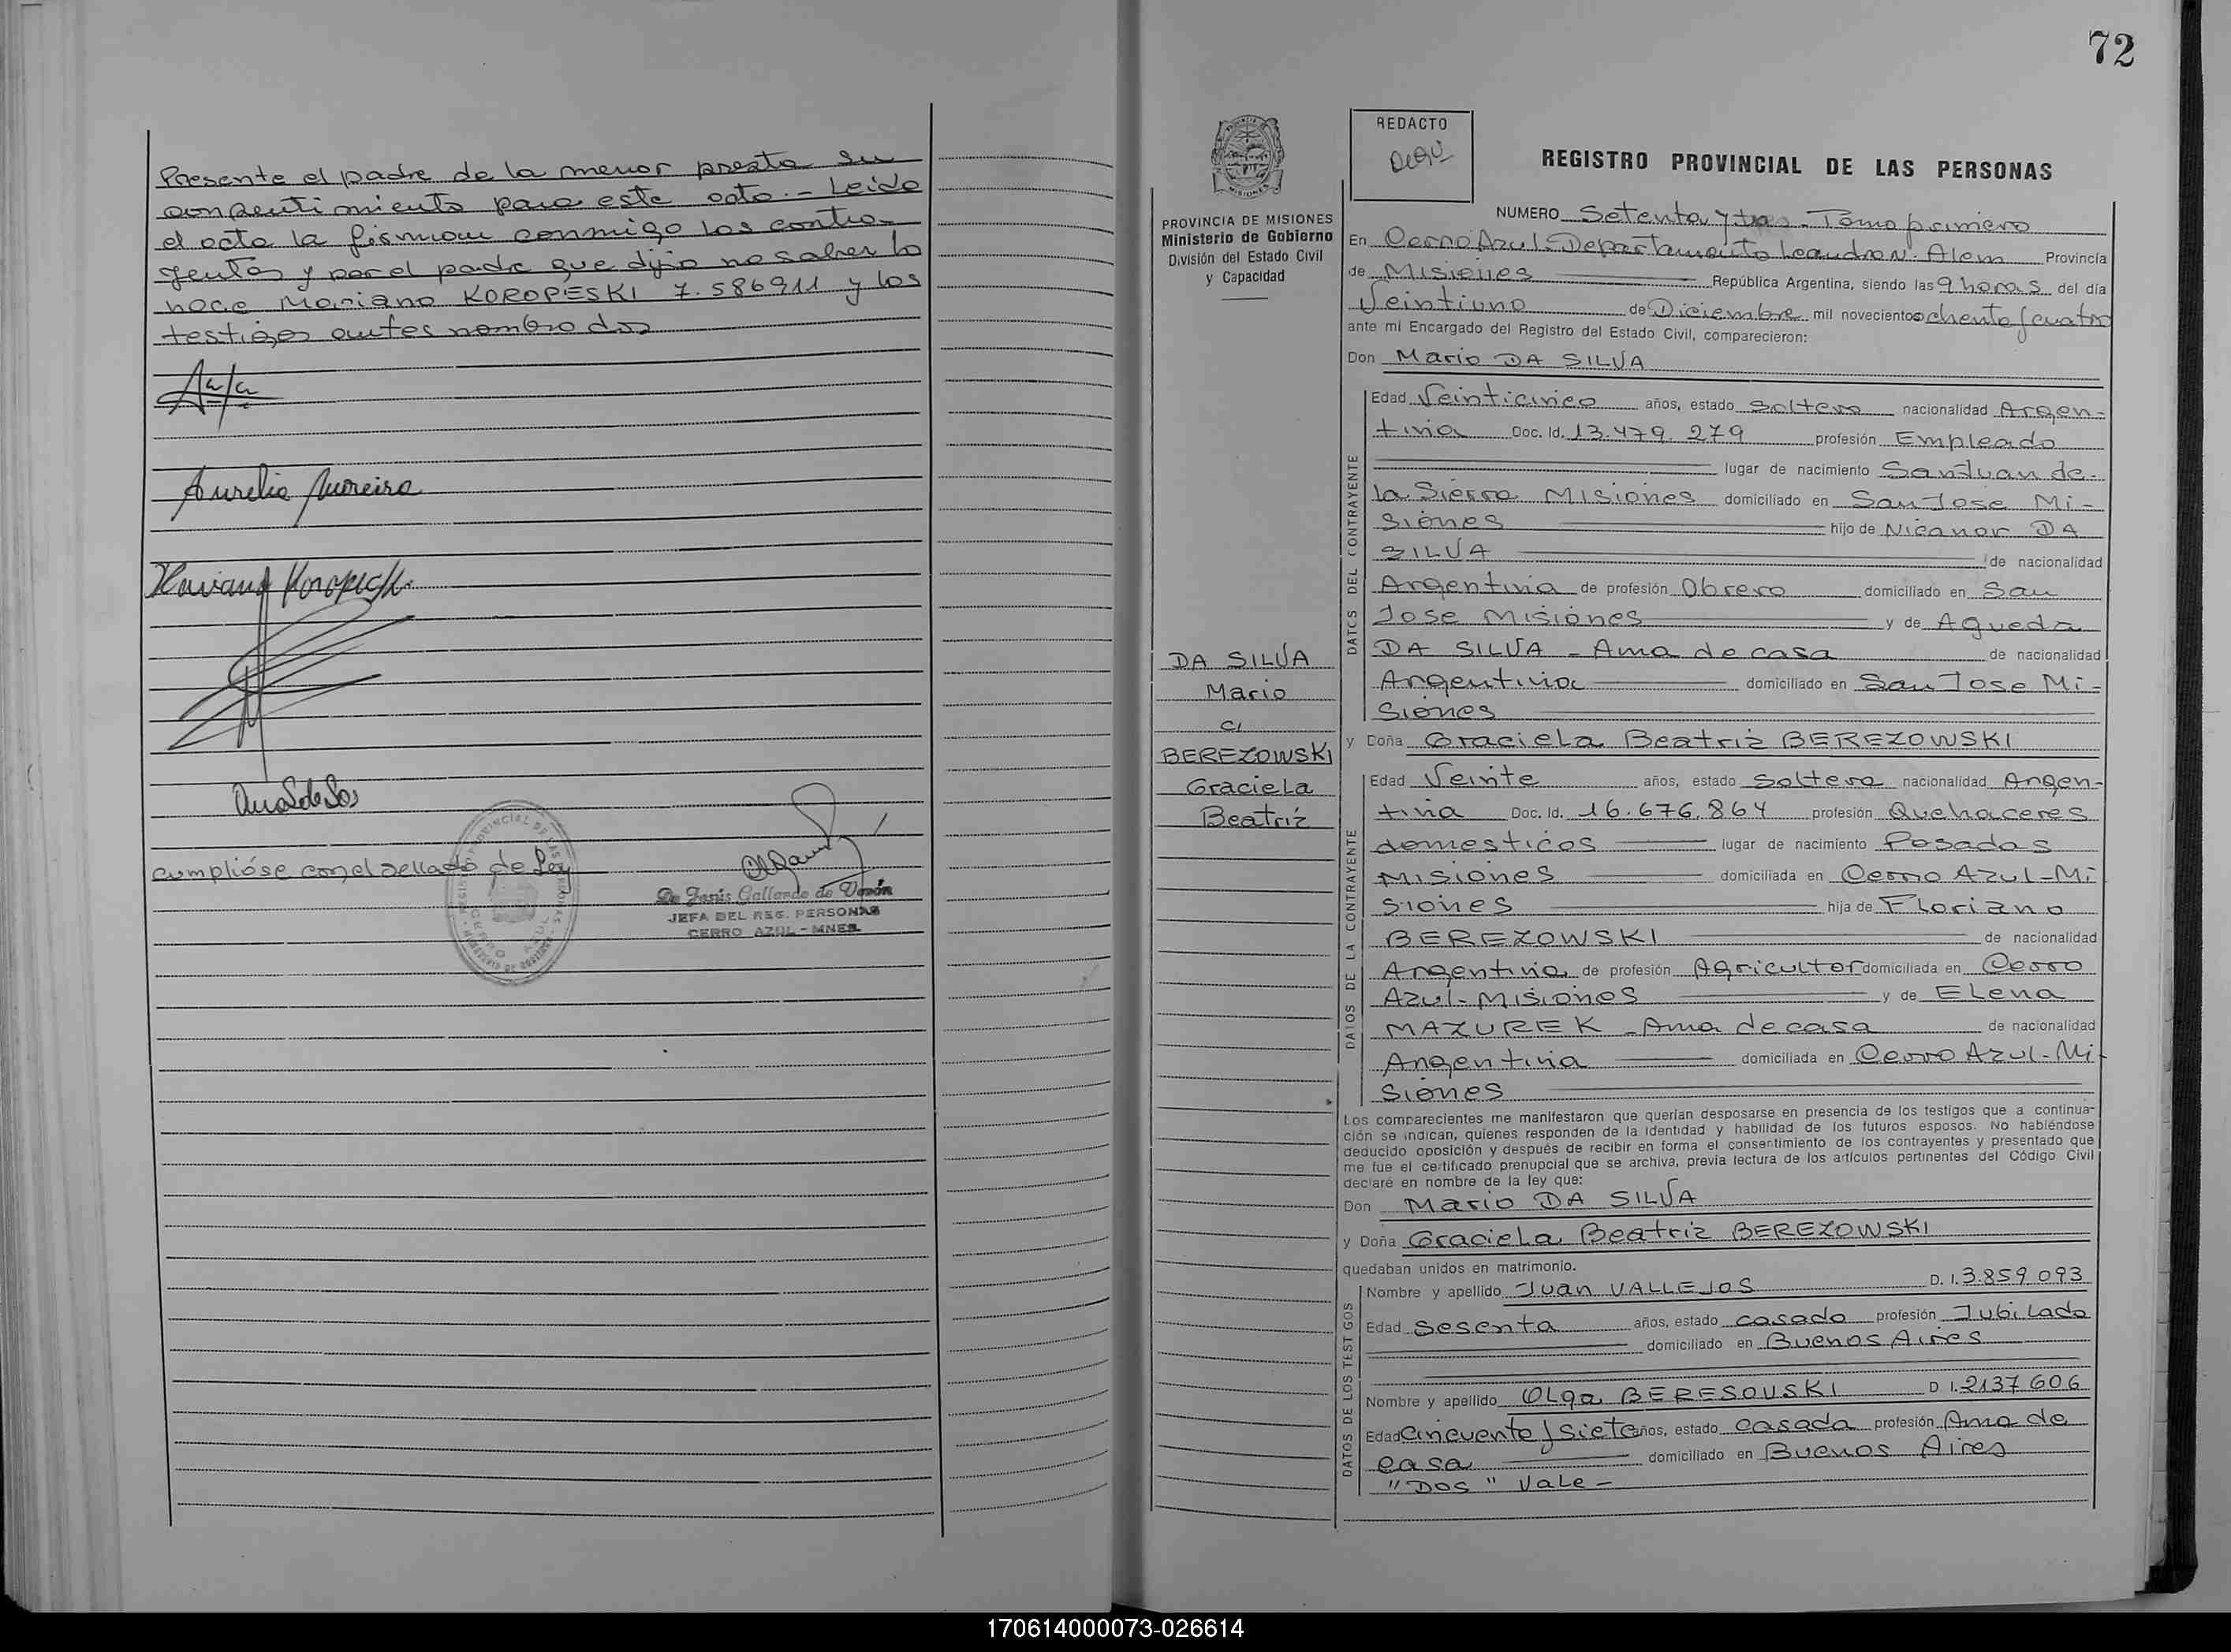 Presente el padre de la menor presta su
consentimiento para este acto.- Leida
el acta la firman conmigo los contra-
yentes y por el padre que dijo no saber lo
hace Mariano KOROPESKI 7.586911 y los
testigos antes nombrados
Aurelio Moreira
cumplióse con el sellado de Ley
JEFA DEL REG. PERSONAS
CERRO AZUL - MNES.
72
MISIONES
PROVINCIA DE MISIONES
Ministerio de Gobierno
División del Estado Civil
y Capacidad
DA SILVA
Mario
c/
BEREZOWSKI
Graciela
Beatriz
REDACTO
REGISTRO PROVINCIAL DE LAS PERSONAS
NUMERO Setenta y tres - Tomo primero
En Cerro Azul - Departamento Leandro N. Alem Provincia
de Misiones República Argentina, siendo las 9 horas del día
Veintiuno de Diciembre mil novecientos ochenta y cuatro
ante mi Encargado del Registro del Estado Civil, comparecieron:
Don Mario DA SILVA
DATOS DEL CONTRAYENTE
Edad Veinticinco años, estado soltero nacionalidad Argen-
tina Doc. Id. 13.479.279 profesión Empleado
lugar de nacimiento San Juan de
la Sierra Misiones domiciliado en San Jose Mi-
siones hijo de Nicanor DA
SILVA de nacionalidad
Argentina de profesión Obrero domiciliado en San
Jose Misiones y de Agueda
DA SILVA - Ama de casa de nacionalidad
Argentina domiciliado en San Jose Mi-
siones
y Doña Graciela Beatriz BEREZOWSKI
DATOS DE LA CONTRAYENTE
Edad Veinte años, estado soltera nacionalidad Argen-
tina Doc. Id. 16.676.864 profesión Quehaceres
domesticos lugar de nacimiento Posadas
Misiones domiciliada en Cerro Azul - Mi
siones hija de Floriano
BEREZOWSKI de nacionalidad
Argentina de profesión Agricultor domiciliada en Cerro
Azul - Misiones y de Elena
MAZUREK - Ama de casa de nacionalidad
Argentina domiciliada en Cerro Azul - Mi-
siones
Los comparecientes me manifestaron que querían desposarse en presencia de los testigos que a continua-
ción se indican, quienes responden de la identidad y habilidad de los futuros esposos. No habiéndose
deducido oposición y después de recibir en forma el consentimiento de los contrayentes y presentado que
me fue el certificado prenupcial que se archiva, previa lectura de los artículos pertinentes del Código Civil
declaré en nombre de la ley que:
Don Mario DA SILVA
y Doña Graciela Beatriz BEREZOWSKI
quedaban unidos en matrimonio.
DATOS DE LOS TESTIGOS
Nombre y apellido Juan VALLEJOS D. I. 3.859.093
Edad Sesenta años, estado casado profesión Jubilado
domiciliado en Buenos Aires
Nombre y apellido Olga BERESOUSKI D. I. 2137606
Edad Cincuenta y siete años, estado casada profesión Ama de
casa domiciliado en Buenos Aires
"Dos" Vale -
170614000073-026614